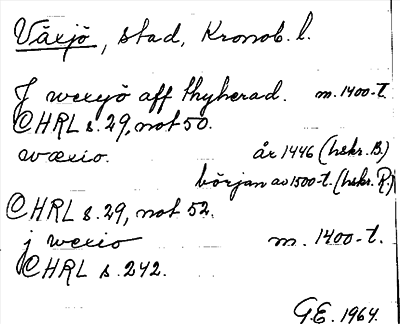 Växjö, stad, Kronob. l.
J wexyö aff thyherad. m. 1400-t.
@HRL s. 29, not 50.
wæxio. år 1446 (hskr. B)
början av 1500-t. (hskr. R.)
@HRL s. 29, not 52.
j wexio m. 1400-t.
@HRL s. 242.
G.E. 1964.